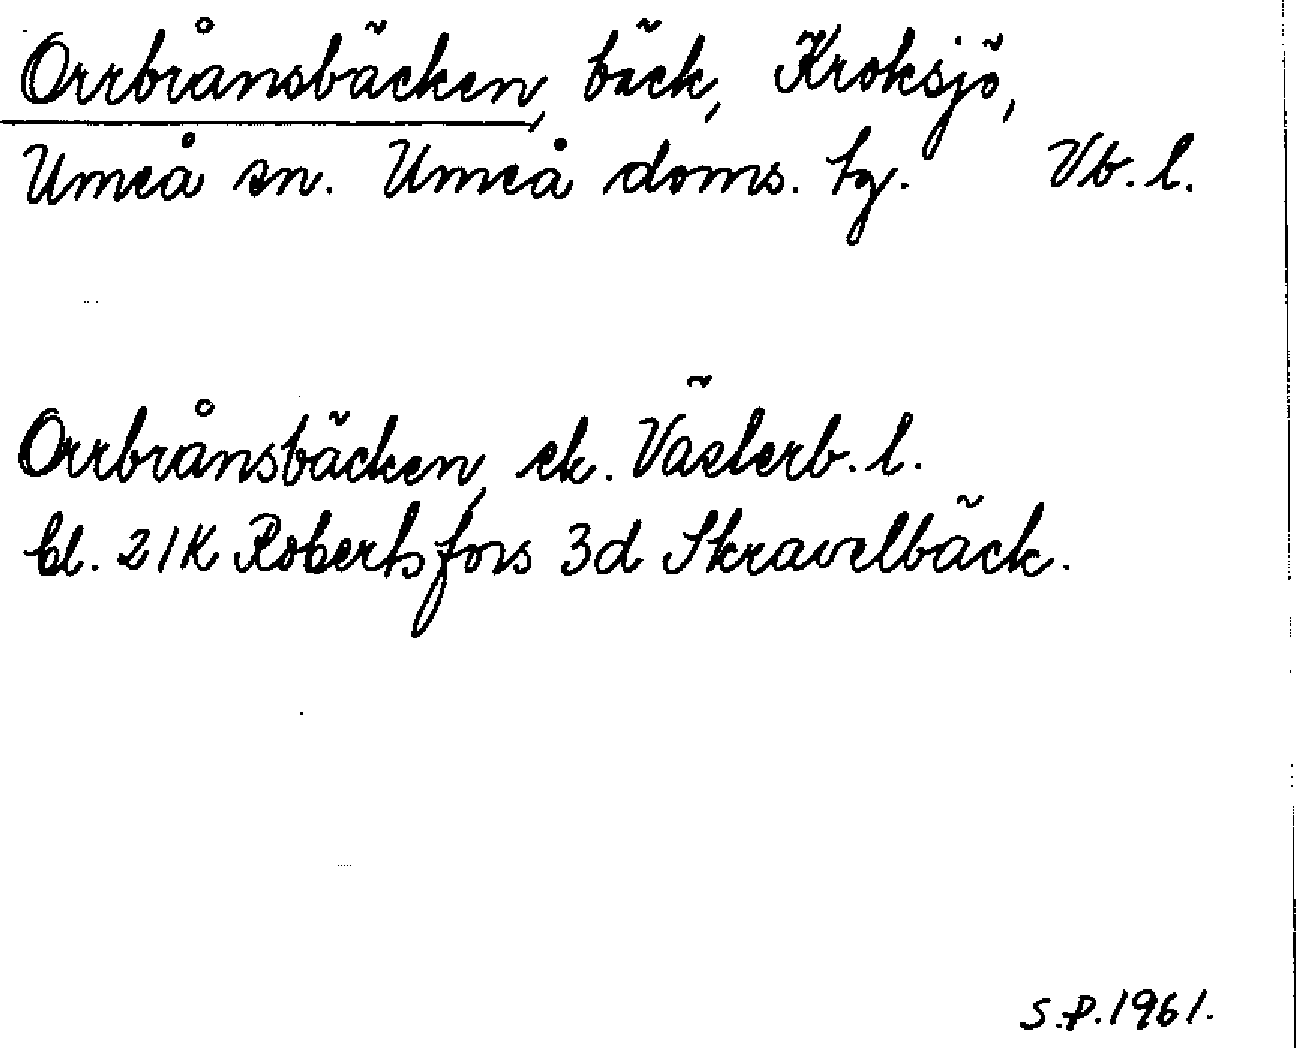 Orrbrånsbäcken, bäck, Kroksjö,
Umeå sn. Umeå doms. tg. Vb. l.
Orrbrånsbäcken, ek. Västerb. l.
bl. 21K Robertsfors 3d Skravelbäck.
S.P. 1961.